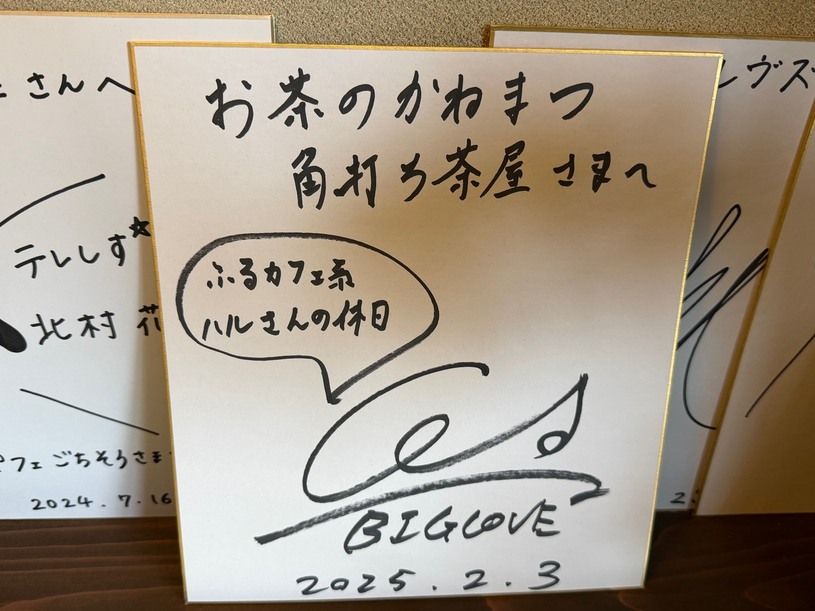 さんへ
テレしず☆
北村 花
フェごちそうさま
2024.7.16
お茶のかねまつ
角打ち茶屋さまへ
ふるカフェ系
ハルさんの休日
BIGLOVE
2025.2.3
ヴス